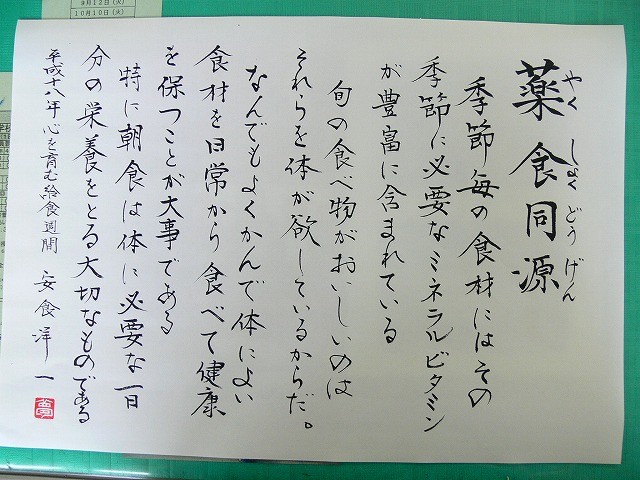 9月12日(火)
10月10日(火)
薬食同源
やくしょくどうげん
季節毎の食材にはその
季節に必要なミネラルビタミン
が豊富に含まれている
旬の食べ物がおいしいのは
それらを体が欲しているからだ。
なんでもよくかんで体によい
食材を日常から食べて健康
を保つことが大事である
特に朝食は体に必要な一日
分の栄養をとる大切なものである
平成十八年心を育む給食週間 安食洋一